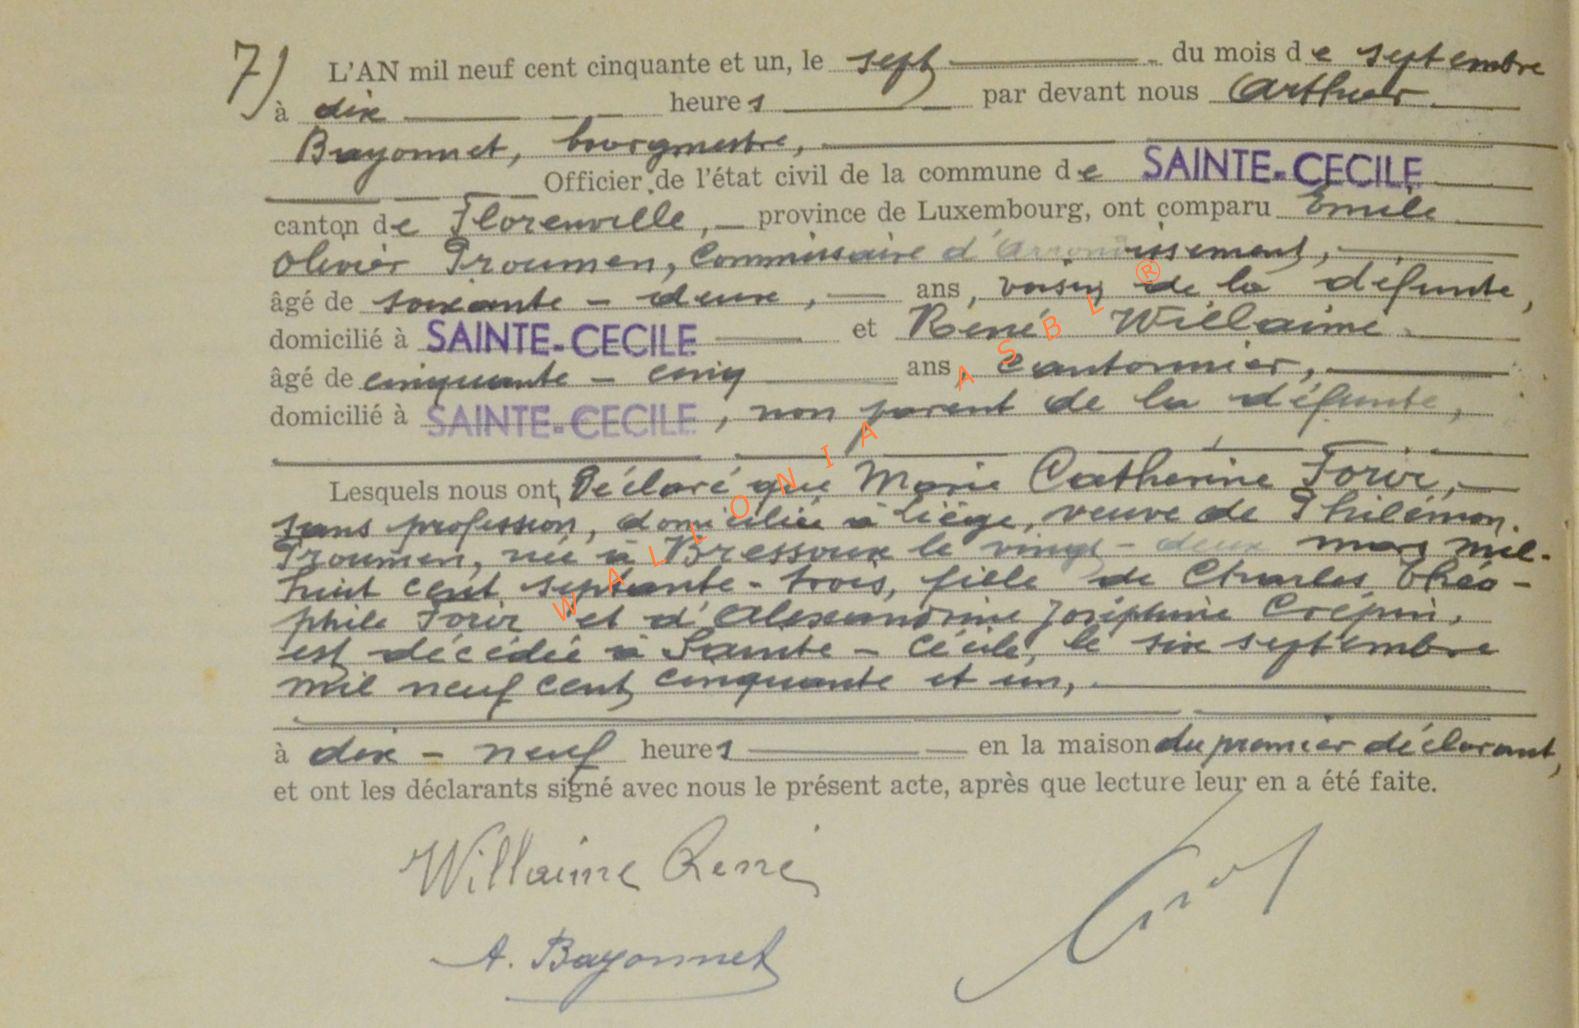 7) L'AN mil neuf cent cinquante et un, le sept du mois de septembre
à dix heures par devant nous Arthur
Bayonnet, bourgmestre,
Officier de l'état civil de la commune de SAINTE-CECILE
canton de Florenville, province de Luxembourg, ont comparu Emile
Olivier Proumen, Commissaire d'arrondissement,
âgé de soixante-deux, ans, voisin de la défunte,
domicilié à SAINTE-CECILE et René Willaime
âgé de cinquante-cinq ans, cantonnier,
domicilié à SAINTE-CECILE, non parent de la défunte,
Lesquels nous ont Déclaré que Marie Catherine Forir,
sans profession, domiciliée à Liège, veuve de Philémon
Proumen, née à Bressoux le vingt-deux mars mil
huit cent septante-trois, fille de Charles Théo-
phile Forir et d'Alexandrine Joséphine Crépin,
est décédée à Sainte-Cécile, le six septembre
mil neuf cent cinquante et un,
à dix-neuf heures en la maison du premier déclarant,
et ont les déclarants signé avec nous le présent acte, après que lecture leur en a été faite.
Willaime René
A. Bayonnet
WALLONIA ASBL ®